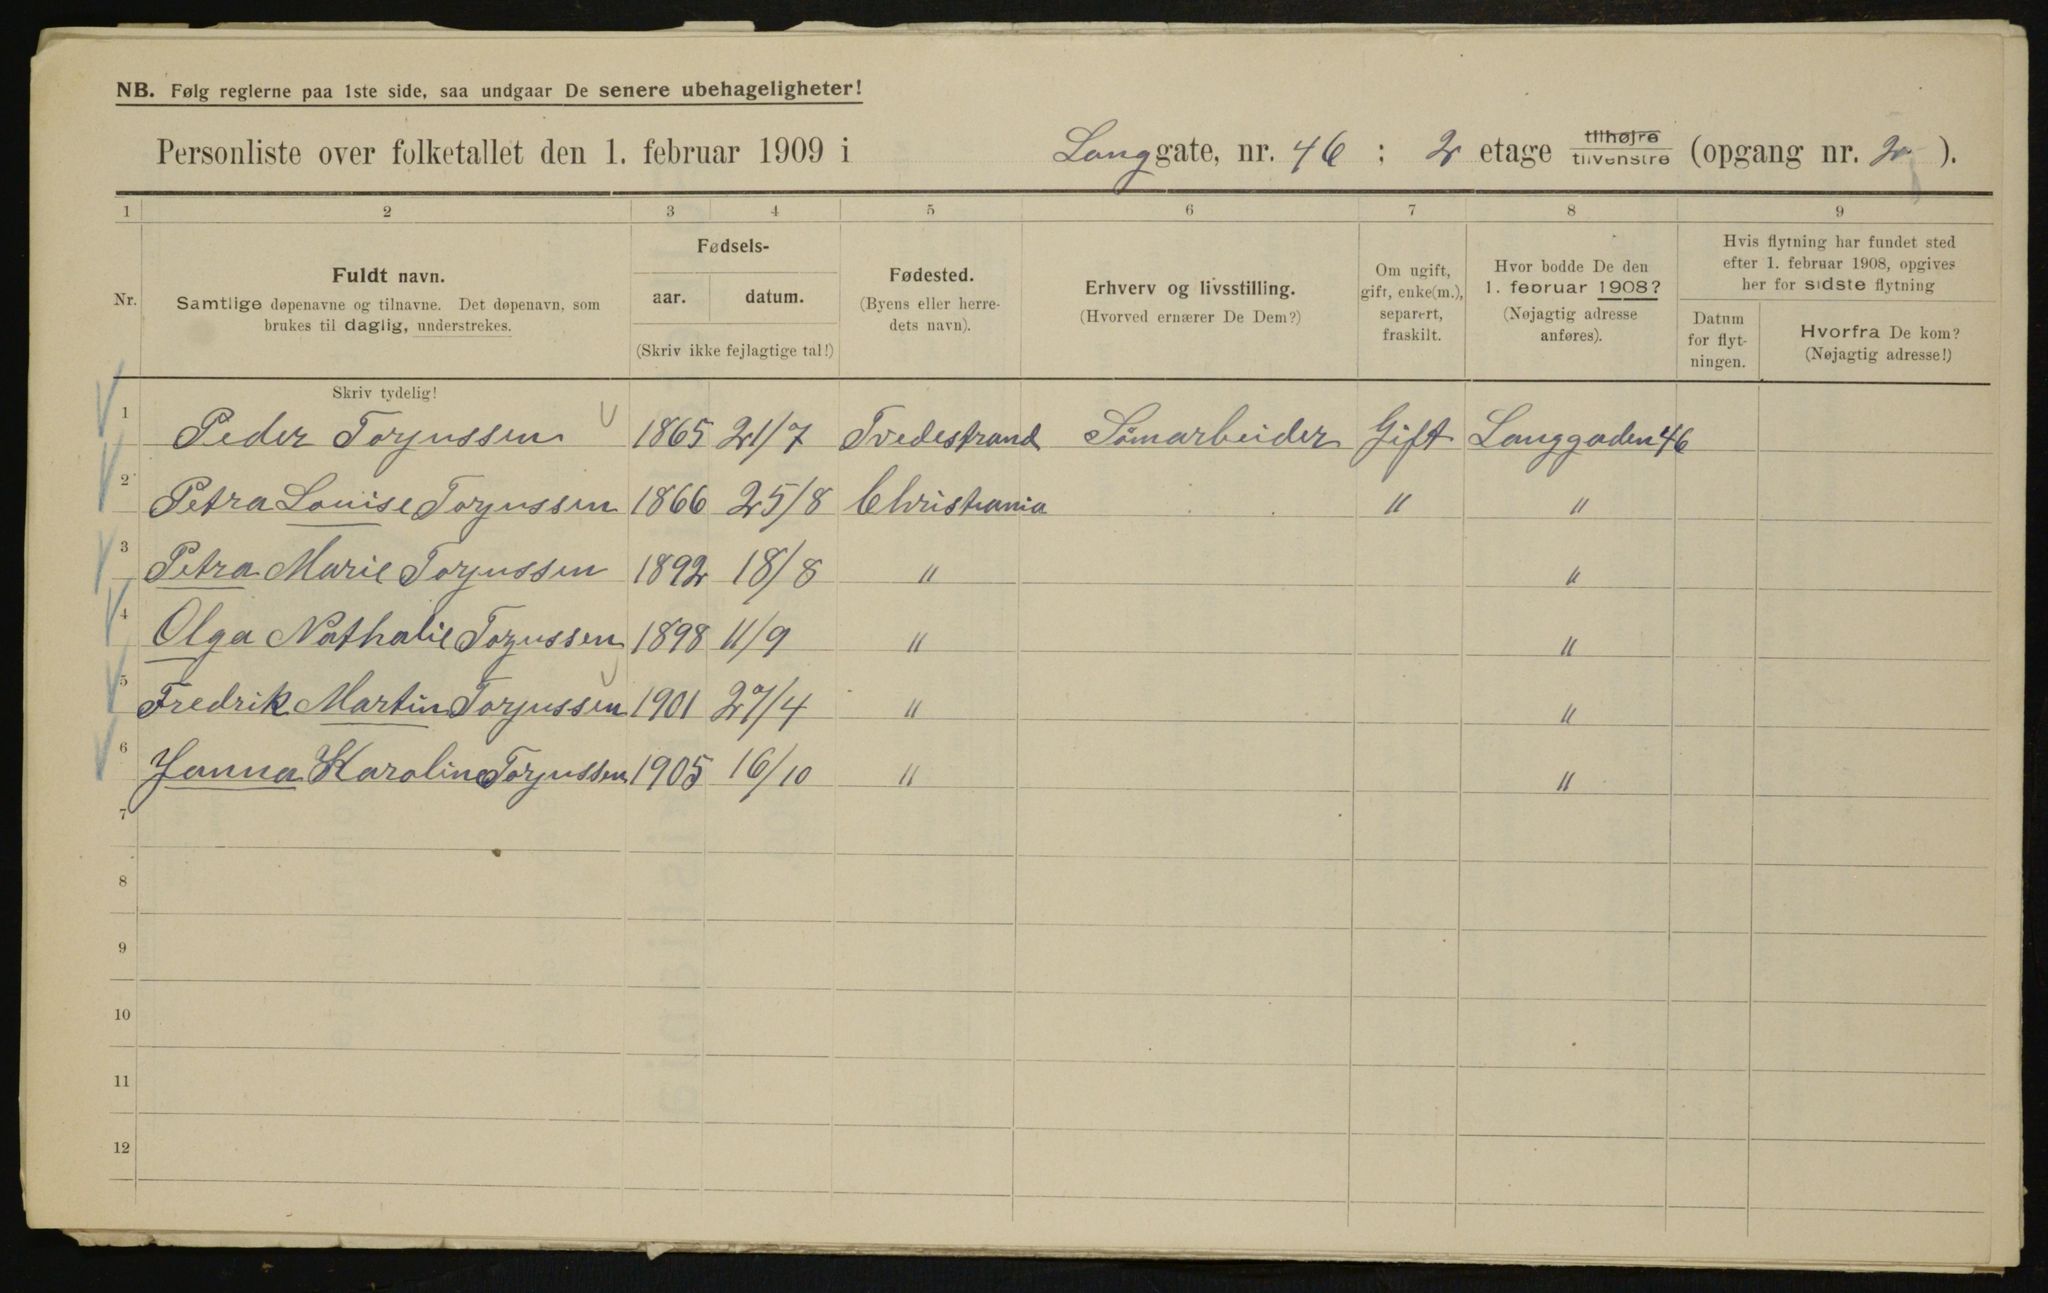 NB. Følg reglerne paa 1ste side, saa undgaar De senere ubehageligheter!
Personliste over folketallet den 1. februar 1909 i Langgate, nr. 46 ; 2 etage tilhøjre tilvenstre (opgang nr. 2 ).
1 2 3 4 5 6 7 8 9
Nr.
Fuldt navn.
Samtlige døpenavne og tilnavne. Det døpenavn, som
brukes til daglig, understrekes.
Fødsels-
aar. datum.
(Skriv ikke fejlagtige tal!)
Fødested.
(Byens eller herre-
dets navn).
Erhverv og livsstilling.
(Hvorved ernærer De Dem?)
Om ugift,
gift, enke(m.),
separert,
fraskilt.
Hvor bodde De den
1. februar 1908?
(Nøjagtig adresse
anføres).
Hvis flytning har fundet sted
efter 1. februar 1908, opgives
her for sidste flytning
Datum
for flyt-
ningen.
Hvorfra De kom?
(Nøjagtig adresse!)
Skriv tydelig!
1 Peder Torjussen 1865 21/7 Tvedestrand Sömarbeider Gift Langgaden 46
2 Petra Louise Torjussen 1866 25/8 Christiania " "
3 Petra Marie Torjussen 1892 18/8 " "
4 Olga Nathalie Torjussen 1898 11/9 " "
5 Fredrik Martin Torjussen 1901 27/4 " "
6 Janna Karoline Torjussen 1905 16/10 " "
7
8
9
10
11
12